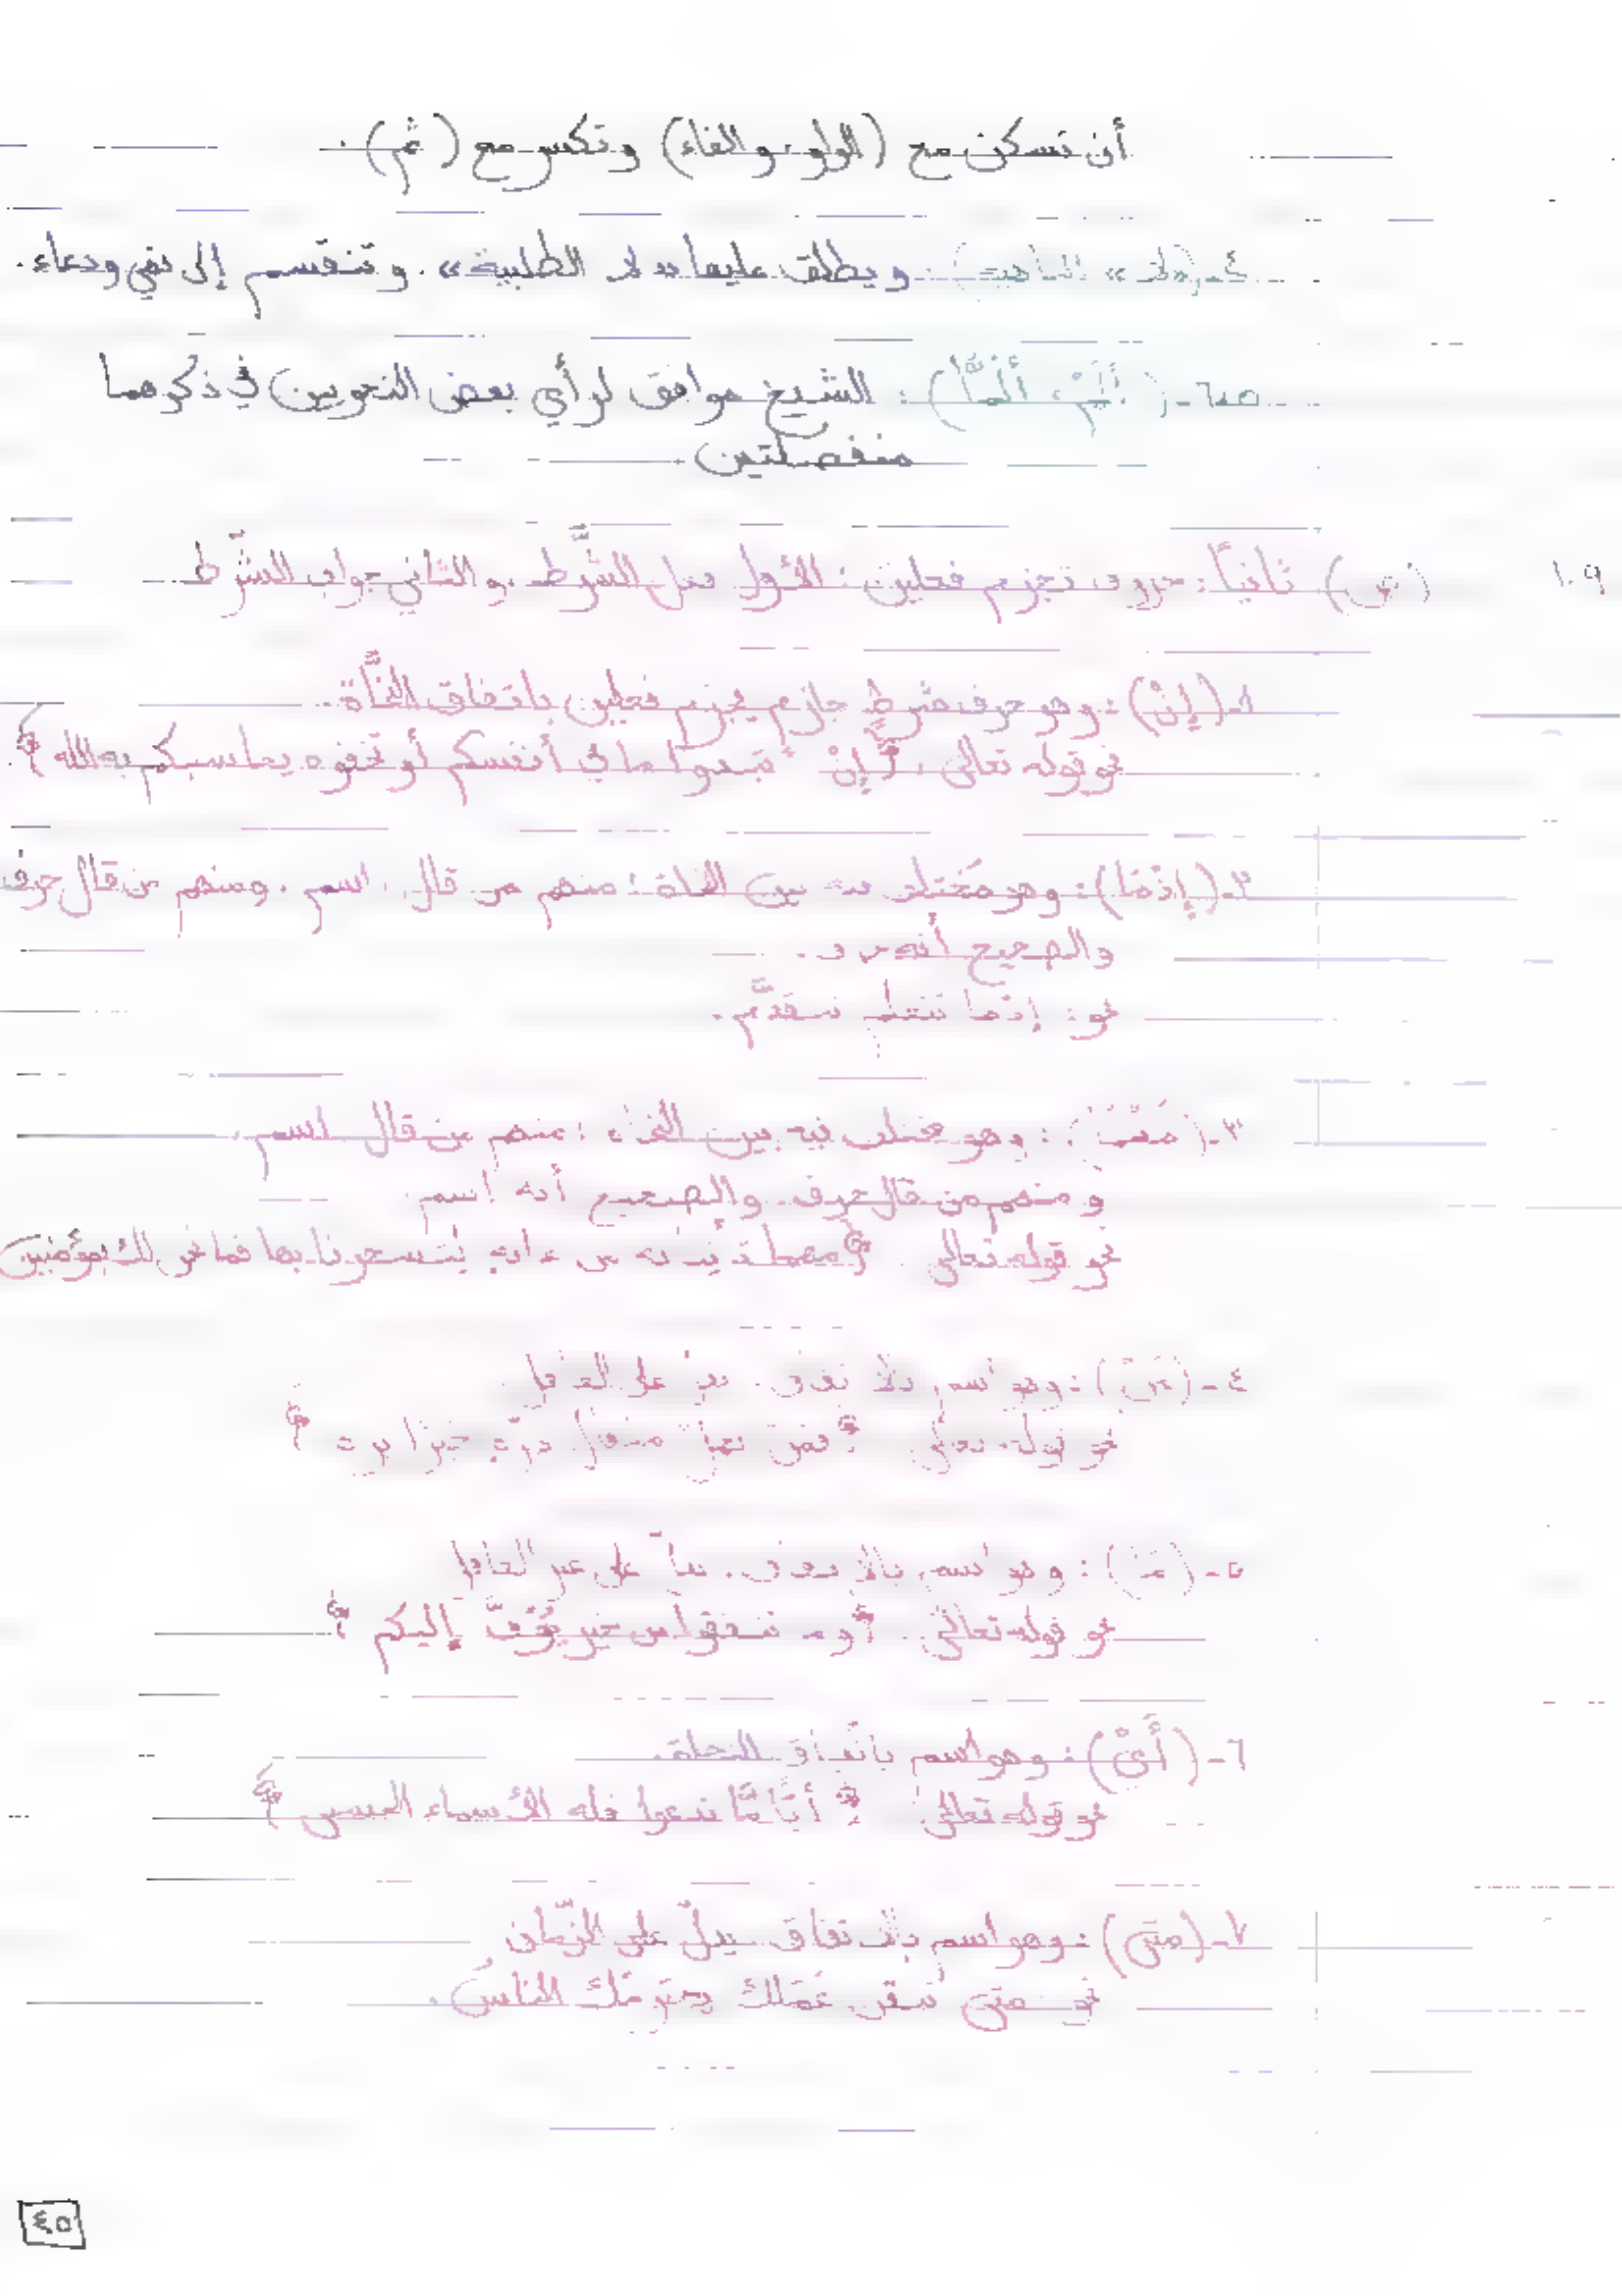 أن تسكن مع (الواو والفاء) وتكسر مع (ثم).
٤- («لا» الناهية): ويطلق عليها «لا الطلبية». وتنقسم إلى نهي ودعاء.
٥،٦- (أَلَمْ، أَلَمَّا): الشيخ موافق لرأي بعض النحويين في ذكرهما
منفصلتين
١٠٩ (ص) ثانياً: حروف تجزم فعلين: الأول فعل الشَّرط والثاني جواب الشَّرط
١- (إنْ): وهو حرف شرطٍ جازم يجزم فعلين باتفاق النُّحاة.
نحو قوله تعالى: ﴿إنْ تبدوا ما في أنفسكم أو تخفوه يحاسبكم به الله﴾
٢- (إِذْمَا): وهو مُختلف فيه بين النحاة: منهم من قال اسم، ومنهم من قال حرف
والصحيح أنه حرف.
نحو: إذما تتعلم تتقدَّم.
٣- (مَهْمَا): وهو مختلف فيه بين النحاة: منهم من قال اسم،
ومنهم من قال حرف. والصحيح أنه اسم
نحو قوله تعالى ﴿مهما تأتنا به من ءاية لتسحرنا بها فما نحن لك بمؤمنين
٤- (مَنْ): وهو اسم بالاتفاق. يدل على العاقل
نحو قوله تعالى ﴿فمن يعمل مثقال ذرة خيرا يره﴾
٥- (مَا): وهو اسم بالاتفاق. يدلّ على غير العاقل
نحو قوله تعالى: ﴿وما تنفقوا من خير يُوَفَّ إليكم﴾
٦- (أَيّ): وهو اسم باتّفاق النحاة.
نحو قوله تعالى: ﴿أيًّا مَّا تدعوا فله الأسماء الحسنى﴾
٧- (متى): وهو اسم بالاتفاق يدلّ على الزّمان
نحو متى تتقن عَمَلك يحترمْك الناسُ.
٤٥